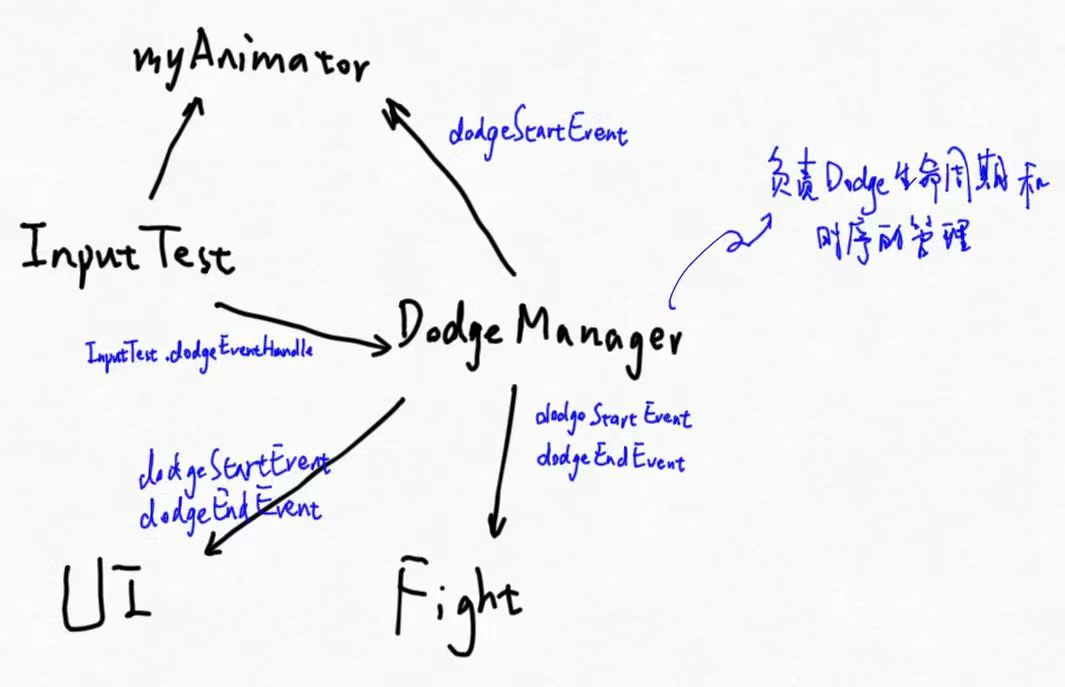 myAnimator
dodgeStartEvent
负责Dodge生命周期和
时序的管理
InputTest
DodgeManager
InputTest.dodgeEventHandle
dodgeStartEvent
dodgeEndEvent
dodgeStartEvent
dodgeEndEvent
UI
Fight